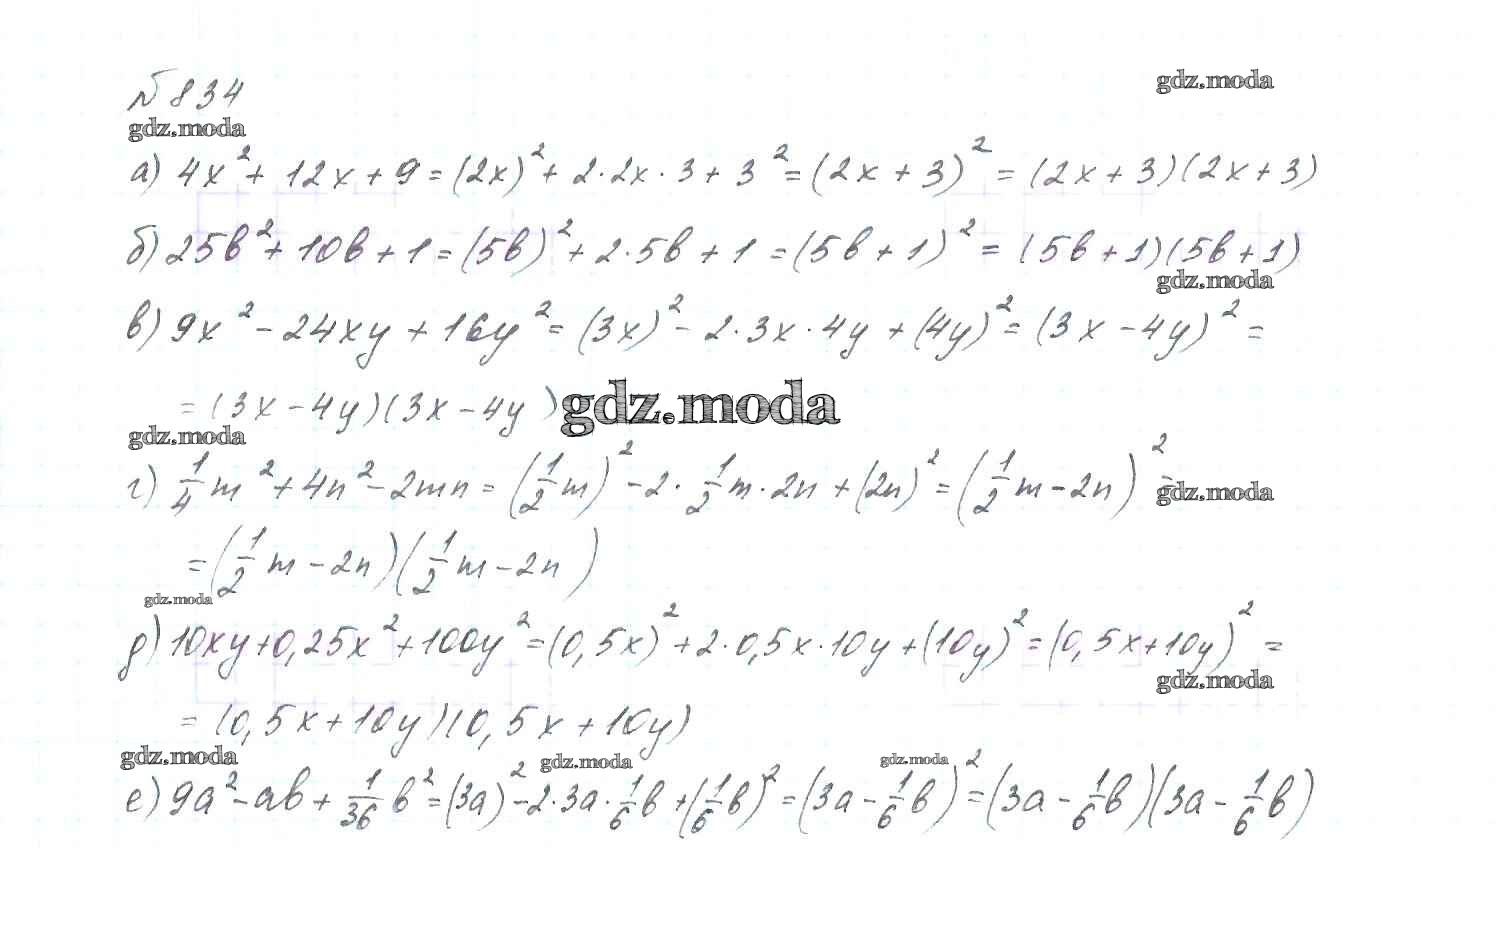 № 834
gdz.moda
gdz.moda
а) 4x² + 12x + 9 = (2x)² + 2·2x·3 + 3² = (2x + 3)² = (2x + 3)(2x + 3)
б) 25b² + 10b + 1 = (5b)² + 2·5b + 1 = (5b + 1)² = (5b + 1)(5b + 1)
gdz.moda
в) 9x² - 24xy + 16y² = (3x)² - 2·3x·4y + (4y)² = (3x - 4y)² =
= (3x - 4y)(3x - 4y)
gdz.moda
gdz.moda
г) 1/4 m² + 4n² - 2mn = (1/2 m)² - 2·1/2 m·2n + (2n)² = (1/2 m - 2n)² =
gdz.moda
= (1/2 m - 2n)(1/2 m - 2n)
gdz.moda
д) 10xy + 0,25x² + 100y² = (0,5x)² + 2·0,5x·10y + (10y)² = (0,5x + 10y)² =
gdz.moda
= (0,5x + 10y)(0,5x + 10y)
gdz.moda
gdz.moda
gdz.moda
е) 9a² - ab + 1/36 b² = (3a)² - 2·3a·1/6 b + (1/6 b)² = (3a - 1/6 b)² = (3a - 1/6 b)(3a - 1/6 b)